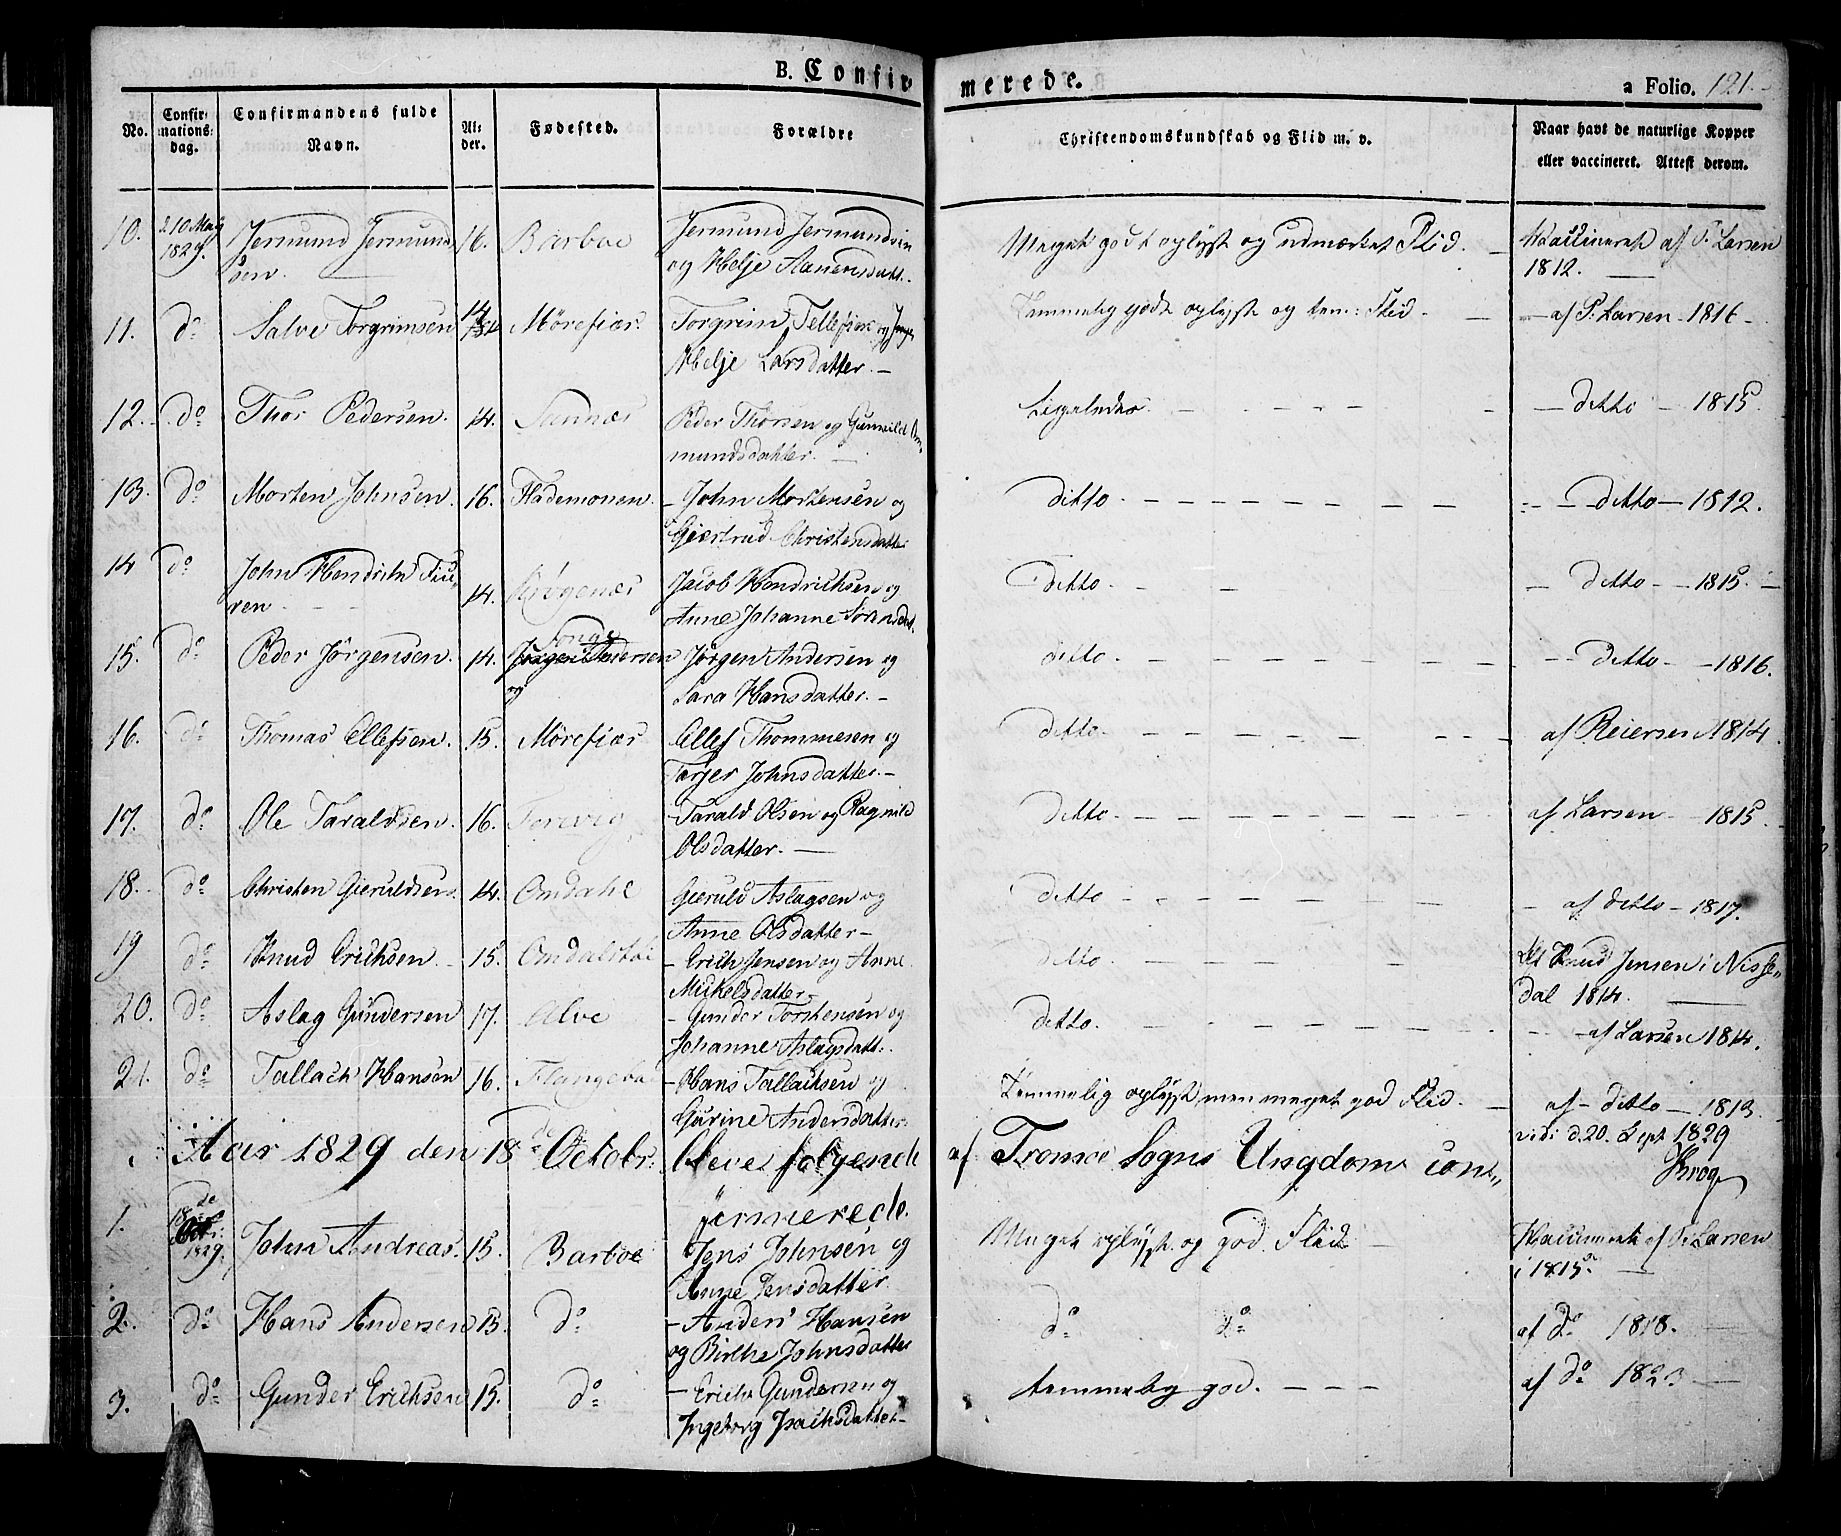 B. Confirmerede.
a Folio. 121.
No. Confirmationsdag. Confirmandens fulde Navn. Alder. Fødested. Forældre Christendomskundskab og Flid m. v. Naar havt de naturlige Kopper eller vaccineret. Attest derom.
10. d. 10 May 1829. Jermund Jermundsen. 16. Barboe Jermund Jermundsen og Helje Aanensdatt. Meget godt oplyst og udmærket Flid. Vaccineret af P. Larsen 1812.
11. do Salve Torgrimsen 14 Mørefiær. Torgrim Tellefsen og Helje Larsdatter. Temmelig godt oplyst og tem: Flid. af P. Larsen 1816
12. do Thor Pedersen. 14. Sannæs Peder Thorsen og Gunnild Amundsdatter. Ligeledes. ditto 1815
13. do Morten Johnsen. 16. Flademonen. John Mortensen og Giertrud Christensdatter ditto ditto 1812.
14 do John Hendrich 14. Krøgenæs Jacob Hendrichsen og Anne Johanne Sørensdat. ditto. ditto 1815.
15. do Peder Jørgensen. 14. Songe Jørgen Andersen og Jørgen Andersen og Sara Hansdatter. ditto. ditto 1816.
16. do Thomas Ellefsen. 15. Mørefiær Ellef Thommesen og Torjer Johnsdatter. ditto. af Reiersen 1814.
17. do Ole Taraldsen. 16. Torevig Tarald Olsen og Ragnild Olsdatter. ditto. af Larsen 1815
18. do Christen Gieruldsen. 14. Omdahl Gieruld Aslagsen og Anne Olsdatter ditto af ditto 1817.
19 do Knud Erichsen. 15. Erich Jensen og Anne Mickelsdatter ditto. af Knud Jensen i Nissedal 1814.
20. do Aslag Gundersen 17. Alve Gunder Torstensen og Johanne Aslagsdatt. ditto. af Larsen 1814.
21. do Tallach Hansen 16. Hans Tallachsen og Gurine Andersdatter. Temmelig oplyst men meget god Flid. af ditto 1813.
vidi d. 20. Sept 1829
Krog
Aar 1829 den 18de Octobr. bleve følgende af Tromøe Sogns Ungdom confirmerede.
1. 18de Oct: 1829. John Andreas. 15. Barboe Jens Johnsen og Anne Jensdatter Meget oplyst og god Flid Vaccineret af P. Larsen i 1815.
2. do Hans Andersen 15. do Anders Hansen og Birthe Johnsdatter do do af do 1818.
3. do Gunder Erichsen 15. do Erich Gundersen og Ingeborg Isachsdatter temmelig god. af do 1823